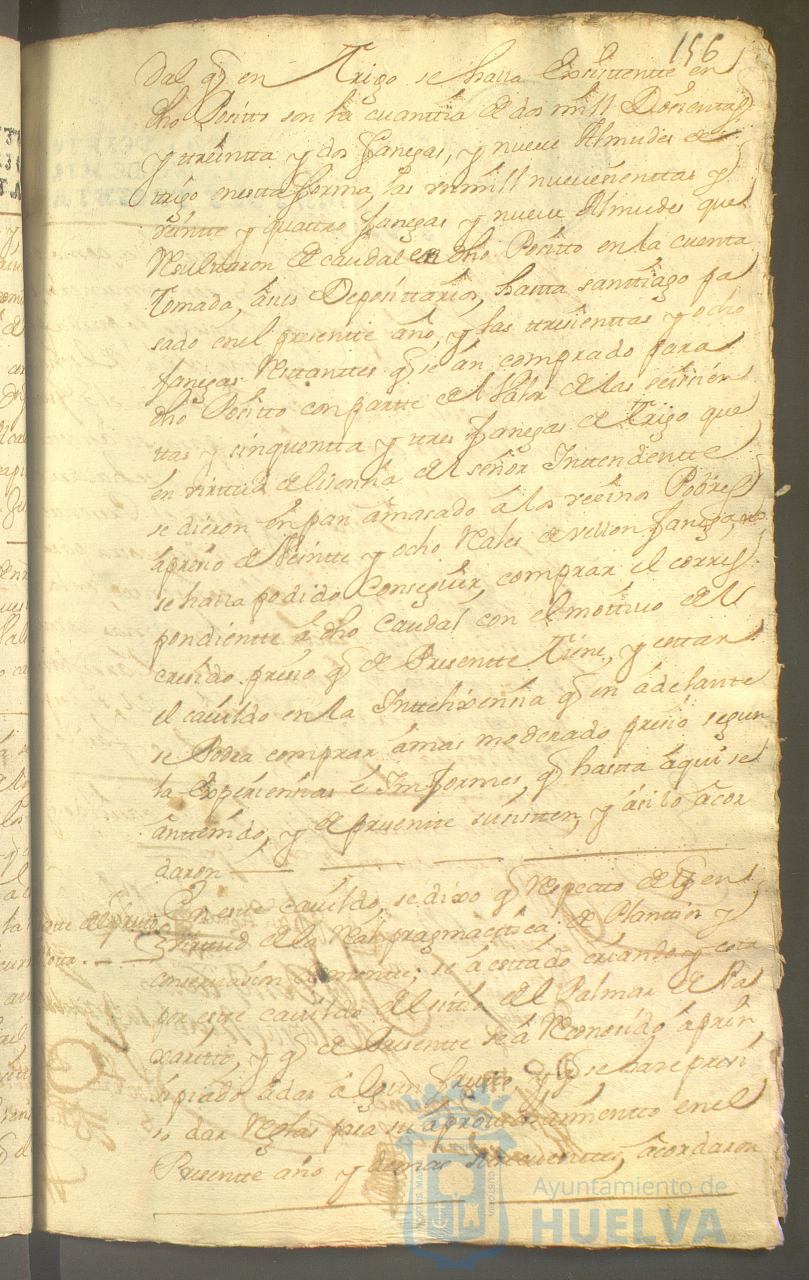 156
dal q̃ en Trigo se halla Existtentte en
dho Positto son la cuanttia de dos mill Dosienttas
y ttreintta y dos fanegas, y nueve Almudes de
ttrigo en estta forma, las mill nuevesienttas y
veintte y quattro fanegas y nueve Almudes que
Resulttaron de caudal en dho Positto en la cuenta
Tomada, a sus Deposittarios, hasta santtiago pa
sado en el presentte año, y las ttresienttas y ocho
fanegas Resttanttes q̃ se an comprado para
dho Positto con partte del Valor de las seisien
ttas y sinquentta y ttres fanegas de Trigo que
en virttud de lisensia del señor Inttendentte
se dieron en pan amasado a los vesinos Pobres
a presio de Veintte y ocho Reales de vellon fanega, no
se halla podido Conseguir, comprar el corres
pondientte a dho Caudal con el mottivo del
cresido presio q̃ de Presentte Tiene, y esttar
el cavildo en la Inttelixensia q̃ en adelante
se Podra comprar a mas moderado presio segun
la Experiensias e Informes, q̃ hasta aqui se
an ttenido, y de presentte susistten, y asi lo acor
daron
En este cavildo, se dixo q̃ Respecto de q̃ en
virttud de la Real pragmattica de Planttio y
conservasion de montes, se a esttado criando y
por este cavildo el sittio del Palmar de Pa
xaritto, y q̃ de Presentte se a Reconosido a prin
sipiado a dar algun frutto, y q̃ se hase presi
so dar Reglas para su aprovechamientto en el
Presentte año y demas subsecuenttes, acordaron
Ayuntamiento de
HUELVA